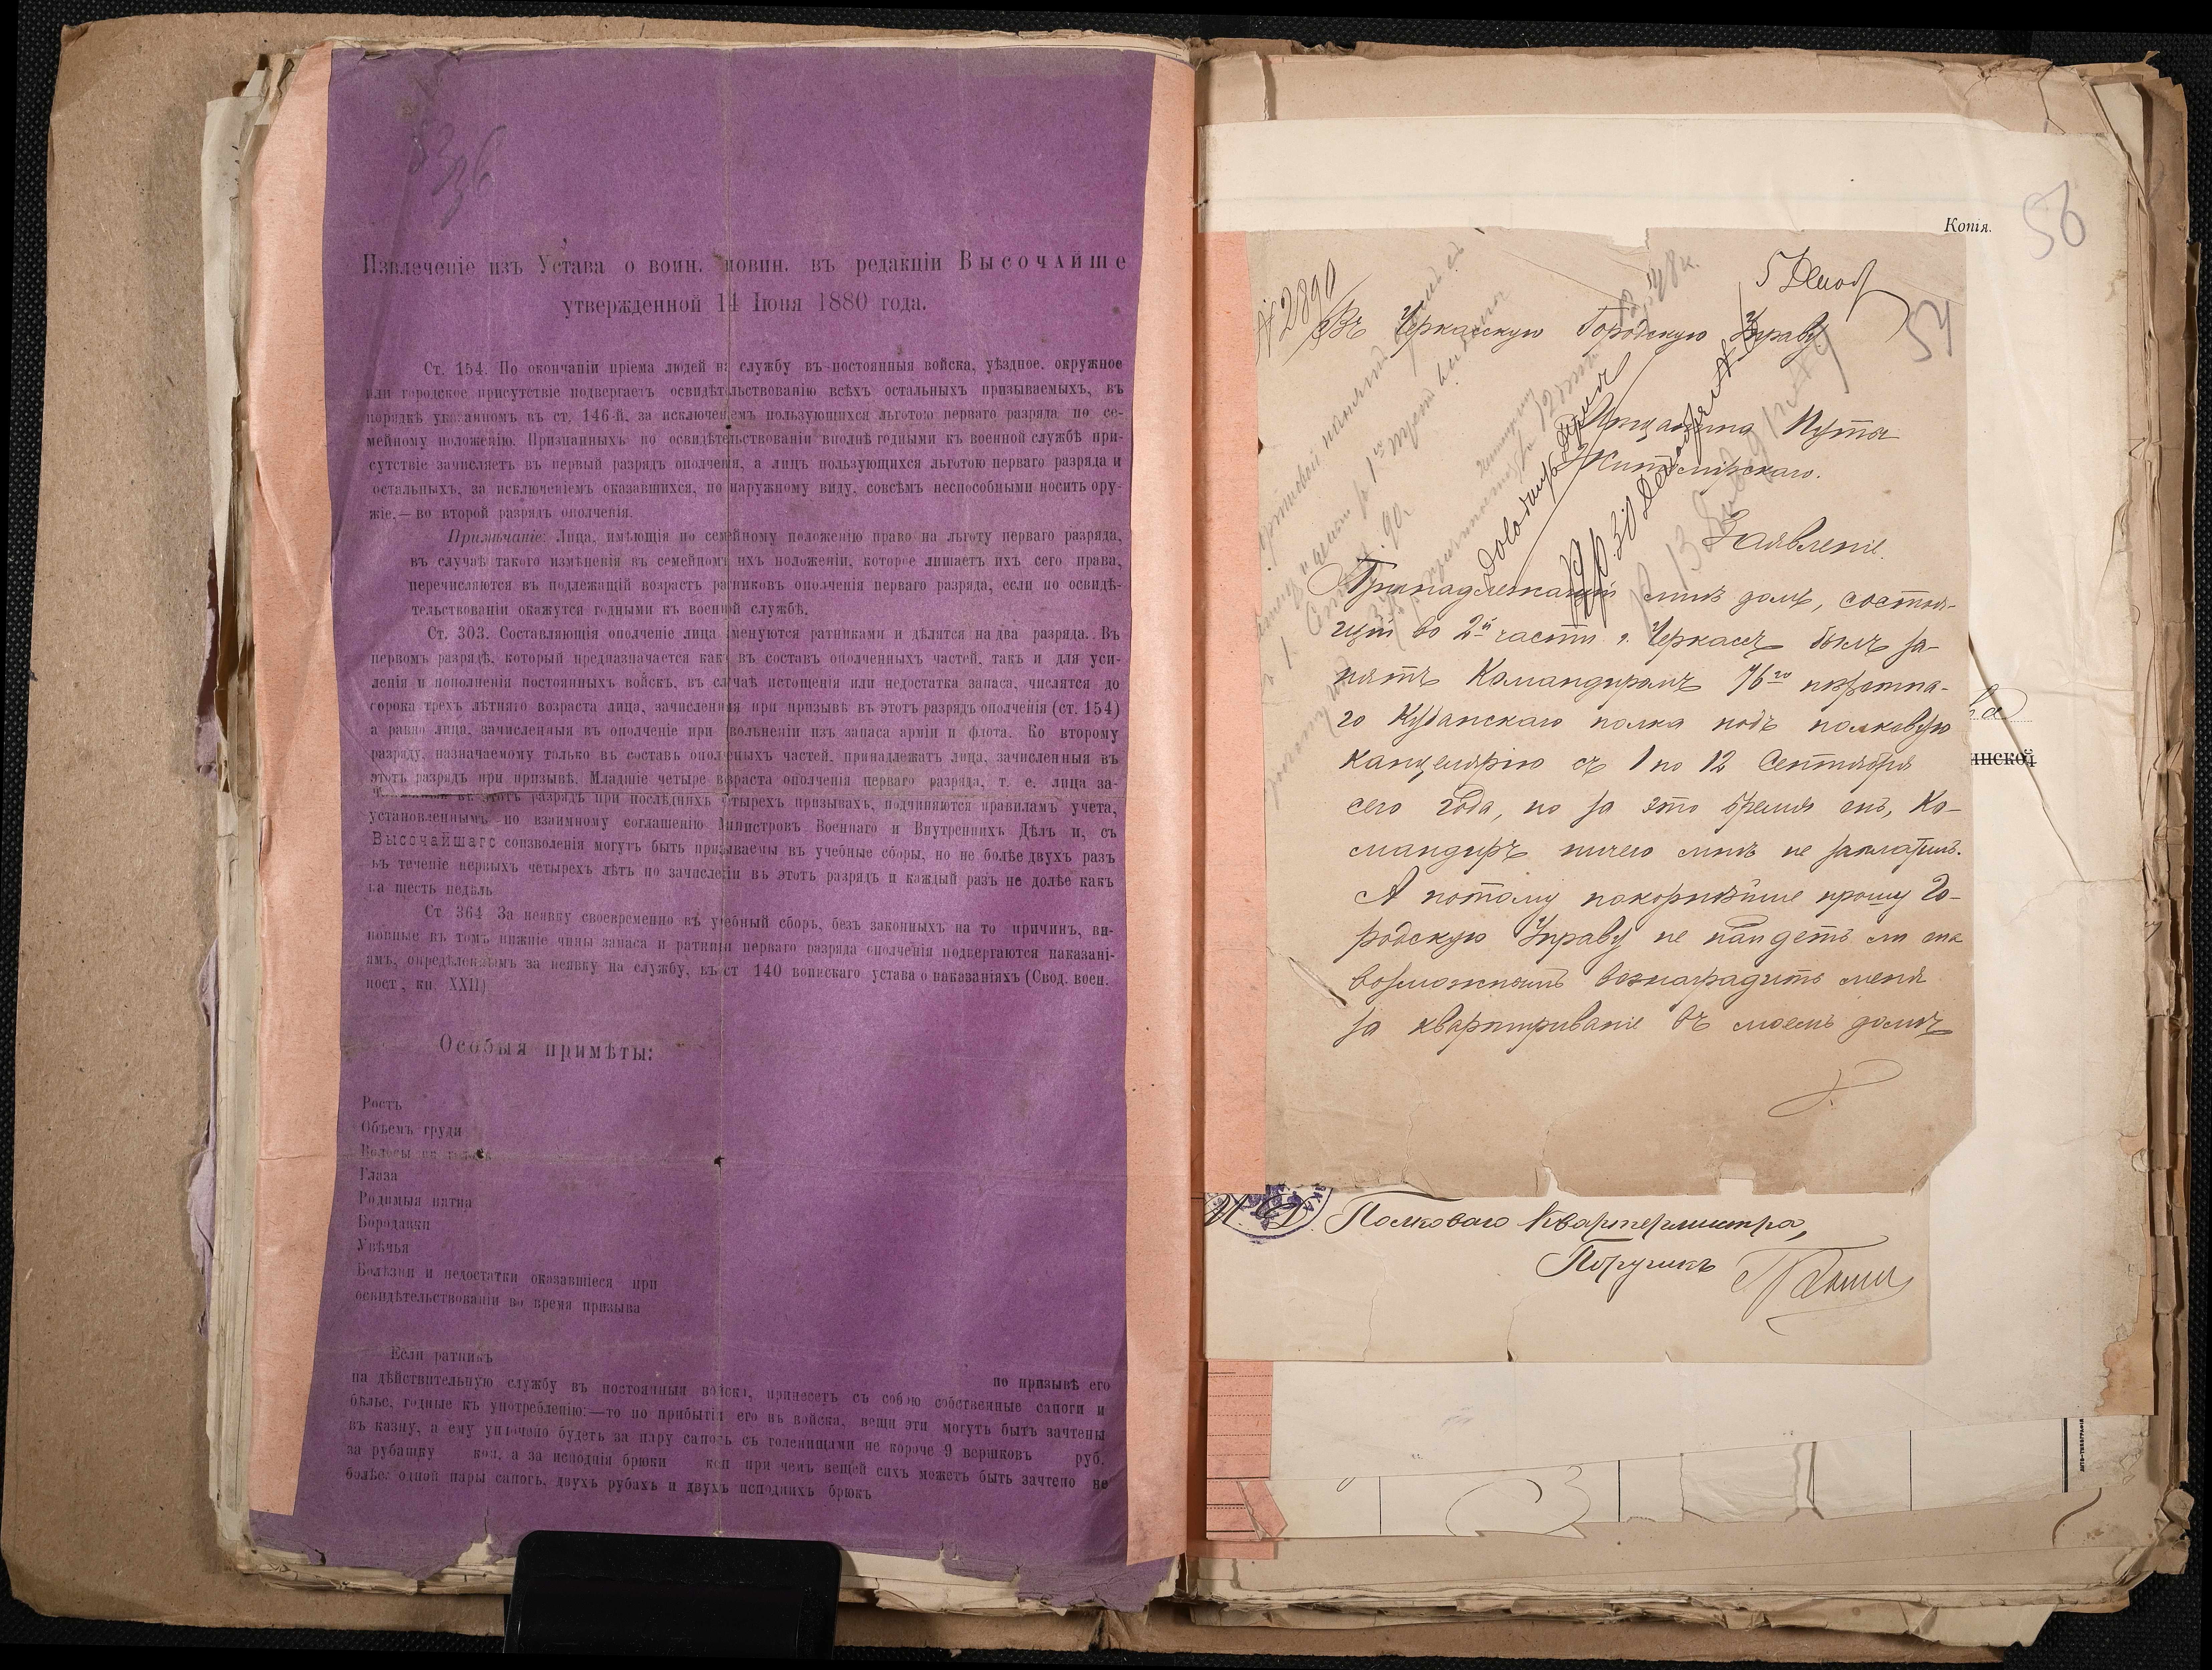 Извлеченіе изъ Устава о воин. повин. въ редакціи Высочайше
утвержденной 14 Іюня 1880 года.
Ст. 154. По окончаніи пріема людей на службу въ постоянныя войска, уѣздное, окружное
или городское присутствіе подвергаетъ освидѣтельствованію всѣхъ остальныхъ призываемыхъ, въ
порядкѣ указанномъ въ ст. 146-й, за исключеніемъ пользующихся льготою перваго разряда по се-
мейному положенію. Признанныхъ по освидѣтельствованіи вполнѣ годными къ военной службѣ при-
сутствіе зачисляетъ въ первый разрядъ ополченія, а лицъ пользующихся льготою перваго разряда и
остальныхъ, за исключеніемъ оказавшихся, по наружному виду, совсѣмъ неспособными носить ору-
жіе,— во второй разрядъ ополченія.
Примѣчаніе: Лица, имѣющія по семейному положенію право на льготу перваго разряда,
въ случаѣ такого измѣненія въ семейномъ ихъ положеніи, которое лишаетъ ихъ сего права,
перечисляются въ подлежащій возрастъ ратниковъ ополченія перваго разряда, если по освидѣ-
тельствованіи окажутся годными къ военной службѣ.
Ст. 303. Составляющія ополченіе лица именуются ратниками и дѣлятся на два разряда. Въ
первомъ разрядѣ, который предназначается какъ въ составъ ополченныхъ частей, такъ и для уси-
ленія и пополненія постоянныхъ войскъ, въ случаѣ истощенія или недостатка запаса, числятся до
сорока трехъ лѣтняго возраста лица, зачисленныя при призывѣ въ этотъ разрядъ ополченія (ст. 154)
а равно лица, зачисленныя въ ополченіе при увольненіи изъ запаса арміи и флота. Ко второму
разряду, назначаемому только въ составъ ополченыхъ частей, принадлежатъ лица, зачисленныя въ
этотъ разрядъ при призывѣ. Младшіе четыре возраста ополченія перваго разряда, т. е. лица за-
численныя въ этотъ разрядъ при послѣднихъ четырехъ призывахъ, подчиняются правиламъ учета,
установленнымъ по взаимному соглашенію Министровъ Военнаго и Внутреннихъ Дѣлъ и, съ
Высочайшаго соизволенія могутъ быть призываемы въ учебные сборы, но не болѣе двухъ разъ
въ теченіе первыхъ четырехъ лѣтъ по зачисленіи въ этотъ разрядъ и каждый разъ не долѣе какъ
на шесть недѣль
Ст 364 За неявку своевременно въ учебный сборъ, безъ законныхъ на то причинъ, ви-
новные въ томъ нижніе чины запаса и ратники перваго разряда ополченія подвергаются наказані-
ямъ, опредѣленнымъ за неявку на службу, въ ст 140 воинскаго устава о наказаніяхъ (Свод. воен.
пост, кн. XXII)
Особыя примѣты:
Ростъ
Объемъ груди
Волосы
Глаза
Родимыя пятна
Бородавки
Увѣчья
Болѣзни и недостатки оказавшіеся при
освидѣтельствованіи во время призыва
Если ратникъ по призывѣ его
на дѣйствительную службу въ постоянныя войска, принесетъ съ собою собственные сапоги и
бѣлье, годные къ употребленію;—то по прибытіи его въ войска, вещи эти могутъ быть зачтены
въ казну, а ему уплочено будетъ за пару сапогъ съ голенищами не короче 9 вершковъ руб.
за рубашку коп, а за исподнія брюки коп при чемъ вещей сихъ можетъ быть зачтено не
болѣе: одной пары сапогъ, двухъ рубахъ и двухъ исподнихъ брюкъ
Копія.
56
54
№ 2890
Въ Черкасскую Городскую Управу
Мѣщанина Пути
Житомирскаго.
Заявленіе.
Принадлежащій мнѣ домъ, состоя-
щій во 2й части г. Черкасъ былъ за-
нятъ Командиромъ 76го пѣхотна-
го Кубанскаго полка подъ полковую
канцелярію съ 1 по 12 Сентября
сего года, но за это время онъ, Ко-
мандиръ ничего мнѣ не заплатилъ.
А потому покорнѣйше прошу Го-
родскую Управу не найдетъ ли она
возможнымъ вознаградить меня
за квартированіе въ моемъ домѣ
И. Д. Полковаго Квартермистра,
Поручикъ
инской